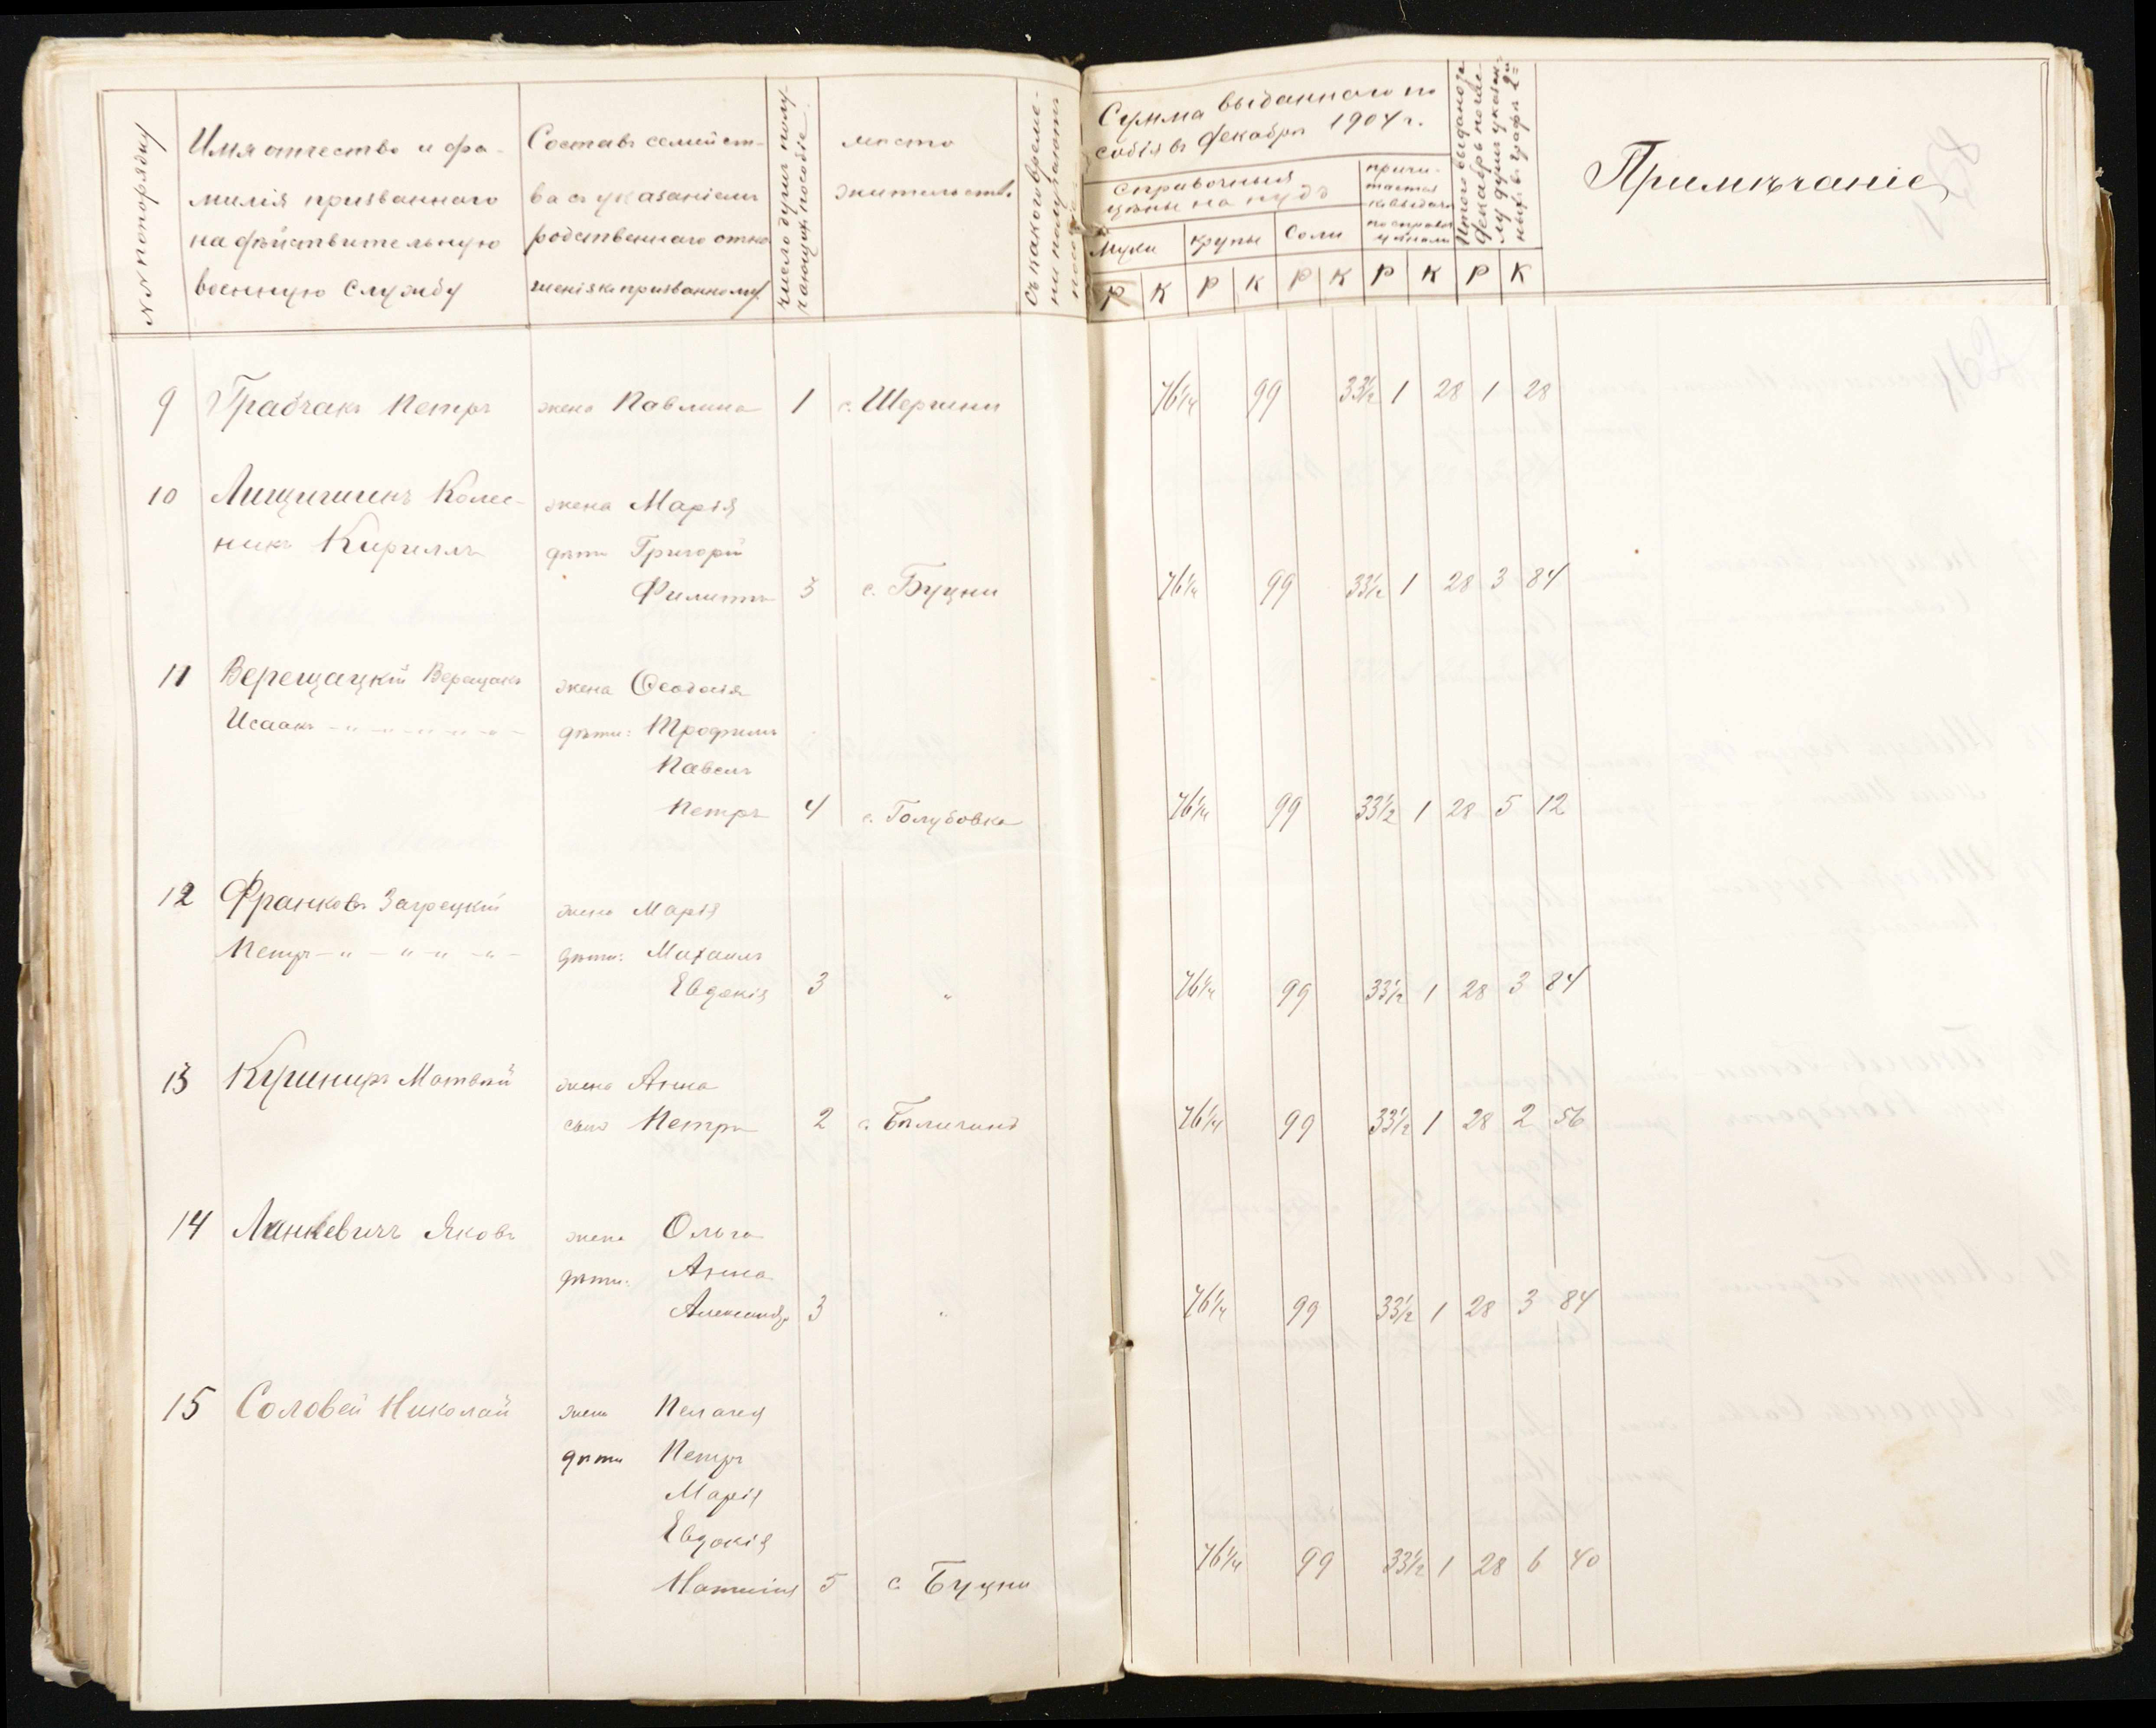 №№ по порядку
Имя отчество и фа-
милія призваннаго
на дѣйствительную
военную службу
Составъ семейст-
ва съ указаніемъ
родственнаго отно
шенія къ призванному
число душъ полу-
чающихъ пособіе
мѣсто
жительств.
Съ какого време-
ни получаютъ
Сумма выданнаго по
собія въ Декабрѣ 1904 г.
справочныя
цѣны на пудъ
Муки
крупы
Соли
причи-
тается
къ выдачѣ
по справоч
цѣнамъ
Итого выдано за
Декабрь мѣсяц
Р К Р К Р К Р К Р К
Примѣчаніе
9 Грабчакъ Петръ жена Павлина 1 с. Шершни 76¼ 99 33½ 1 28 1 28
10 Лищишинъ Колес- жена Марія
никъ Кириллъ дѣти Григорій
Филиппъ 3 с. Буцни 76¼ 99 33½ 1 28 3 84
11 Верещацкій Верещакъ жена Ѳеодосія
Исаакъ - " - " - " - " - дѣти: Трофимъ
Павелъ
Петръ 4 с. Голубовка 76¼ 99 33½ 1 28 5 12
12 Франковъ Загрецкій жена Марія
Петръ - " - " - " - " - дѣти: Михаилъ
Евдокія 3 " 76¼ 99 33½ 1 28 3 84
13 Кушниръ Матвѣй жена Анна
сынъ Петръ 2 с. 76¼ 99 33½ 1 28 2 56
14 Яковъ жена Ольга
дѣти: Анна
Александр 3 " 76¼ 99 33½ 1 28 3 84
15 Соловей Николай жена Пелагея
дѣти Петръ
Марія
Евдокія
5 с Буцни 76¼ 99 33½ 1 28 6 40